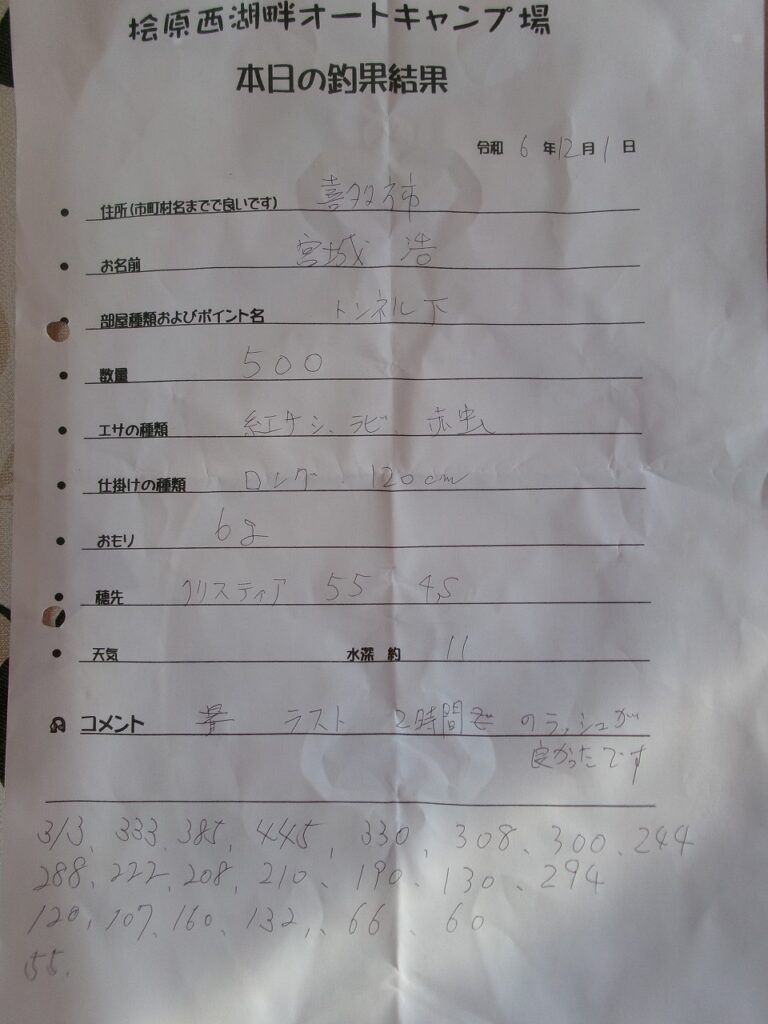 桧原西湖畔オートキャンプ場
本日の釣果結果
令和 6 年 12 月 1 日
住所(市町村名までで良いです) 喜多方市
お名前 宮城 浩
部屋種類およびポイント名 トンネル下
数量 500
エサの種類 紅サシ、ラビ、赤虫
仕掛けの種類 ロング 120cm
おもり 6g
穂先 クリスティア 55 4,S
天気 水深 約 11
コメント ラスト 2時間 のラッシュが
良かったです
313、333、385、445、330、308、300、244
288、222、208、210、190、130、294
120、107、160、132、、66、60
55、